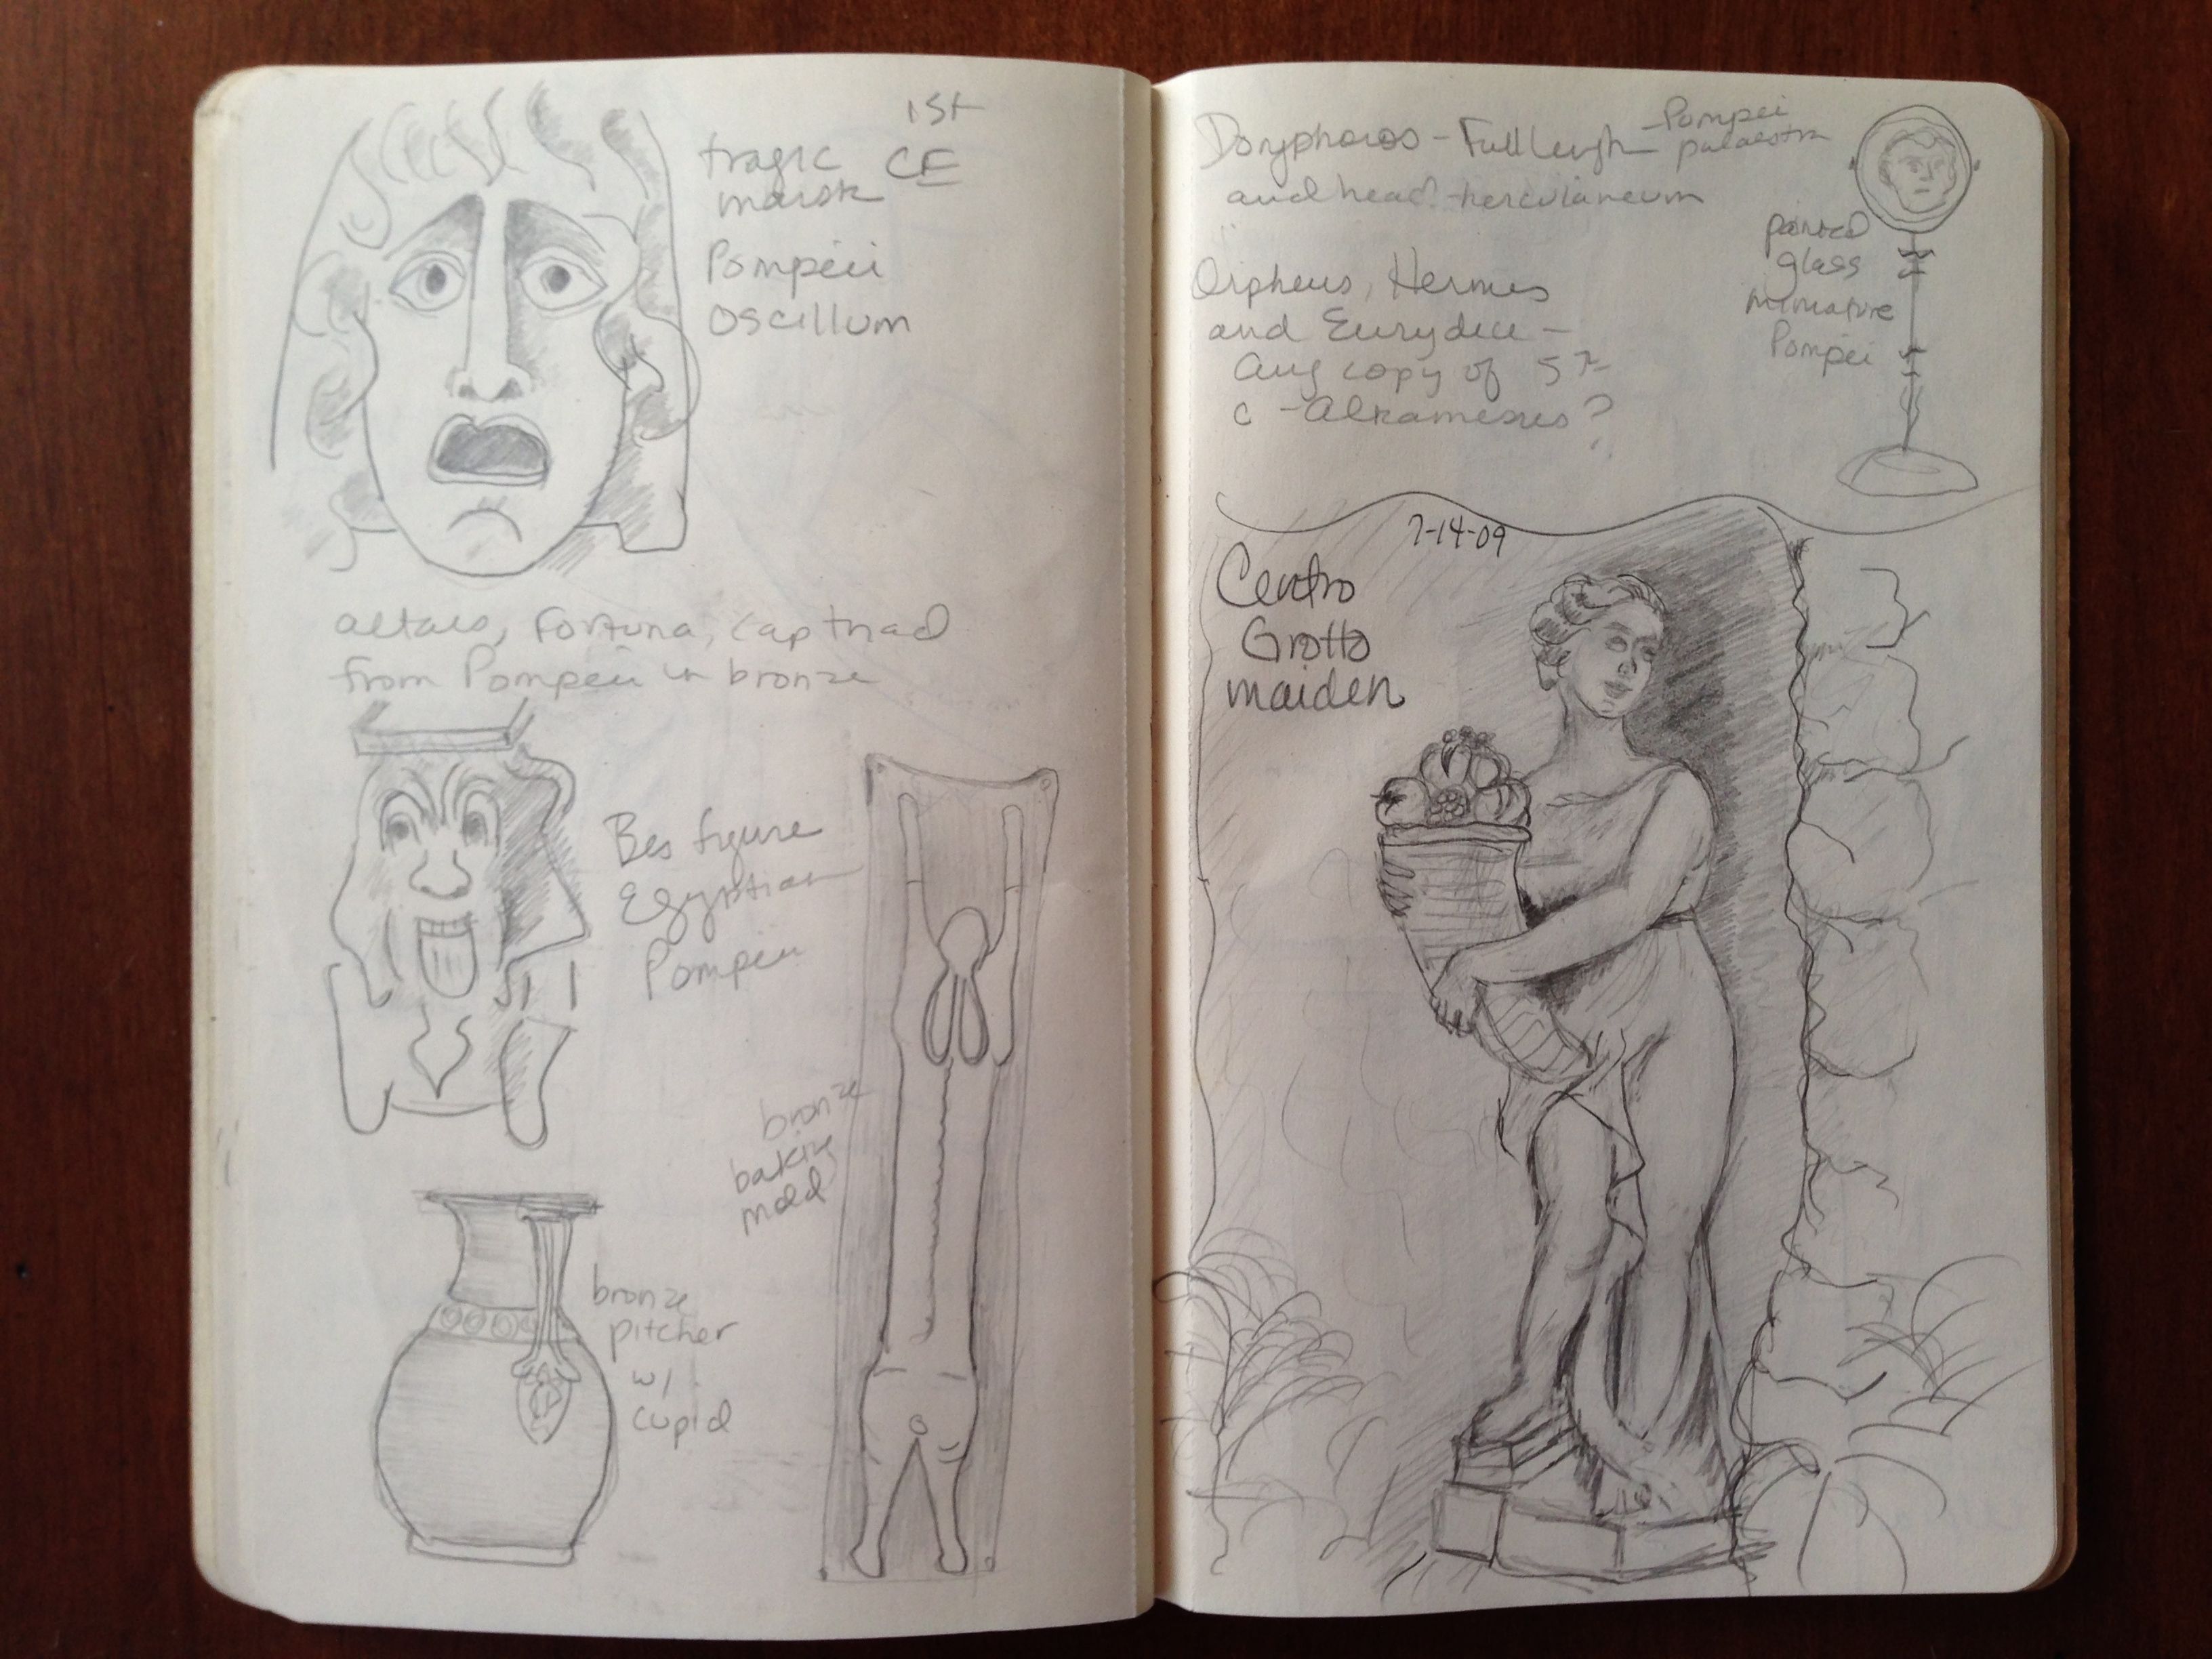 1st
tragic CE
mask
Pompeii
oscillum
altars, Fortuna, Cap triad
from Pompeii in bronze
Bes figure
Egyptian
Pompeii
bronze
baking
mold
bronze
pitcher
w/
cupid
Doryphoros - Full length - Pompeii
palaestra
and head - herculaneum
painted
glass
miniature
Pompeii
Orpheus, Hermes
and Eurydice -
Aug copy of 5th
c - Alkamenes?
7-14-09
Centro
Grotto
maiden